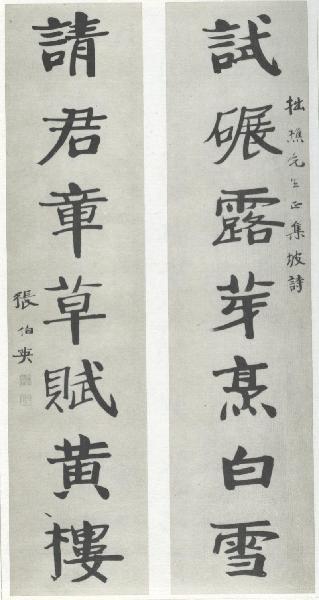 拙樵先生正集坡詩
試碾露芽烹白雪
請君章草賦黄樓
張伯英